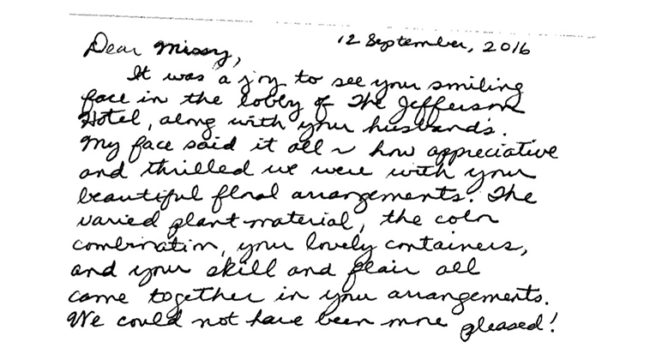 12 September, 2016
Dear Missy,
It was a joy to see your smiling
face in the lobby of The Jefferson
Hotel, along with your husband's.
My face said it all ~ how appreciative
and thrilled we were with your
beautiful floral arrangements. The
varied plant material, the color
combination, your lovely containers,
and your skill and flair all
came together in your arrangements.
We could not have been more pleased!